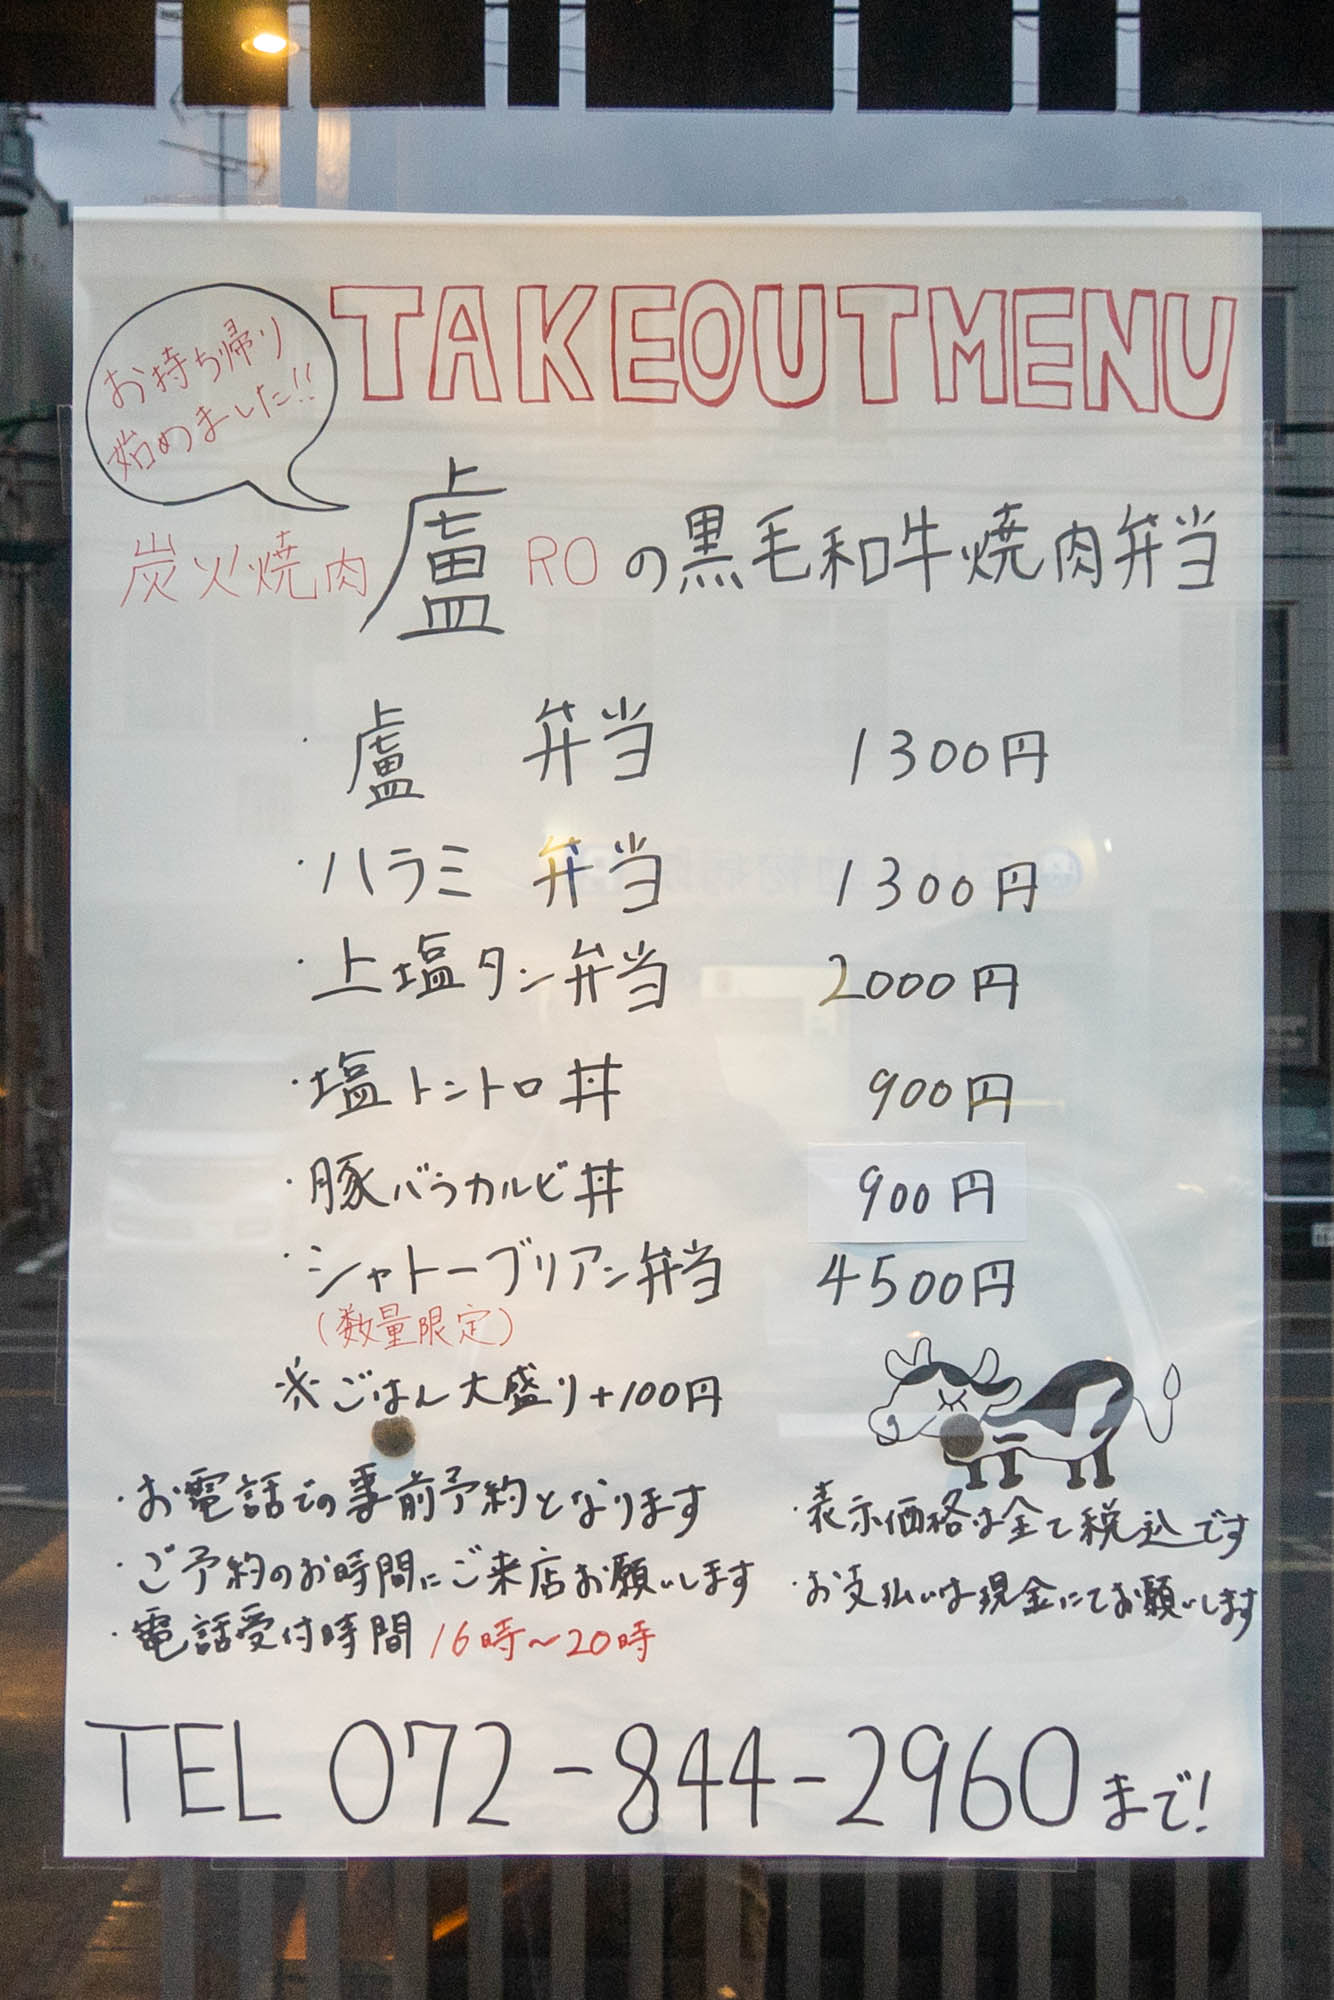 お持ち帰り
始めました!!
TAKEOUTMENU
炭火焼肉盧ROの黒毛和牛焼肉弁当
・盧 弁当 1300円
・ハラミ 弁当 1300円
・上塩タン弁当 2000円
・塩トントロ丼 900円
・豚バラカルビ丼 900円
・シャトーブリアン弁当 4500円
(数量限定)
※ごはん大盛り+100円
・お電話での事前予約となります
・ご予約のお時間にご来店お願いします
・電話受付時間 16時～20時
・表示価格は全て税込です
・お支払いは現金にてお願いします
TEL 072-844-2960まで!